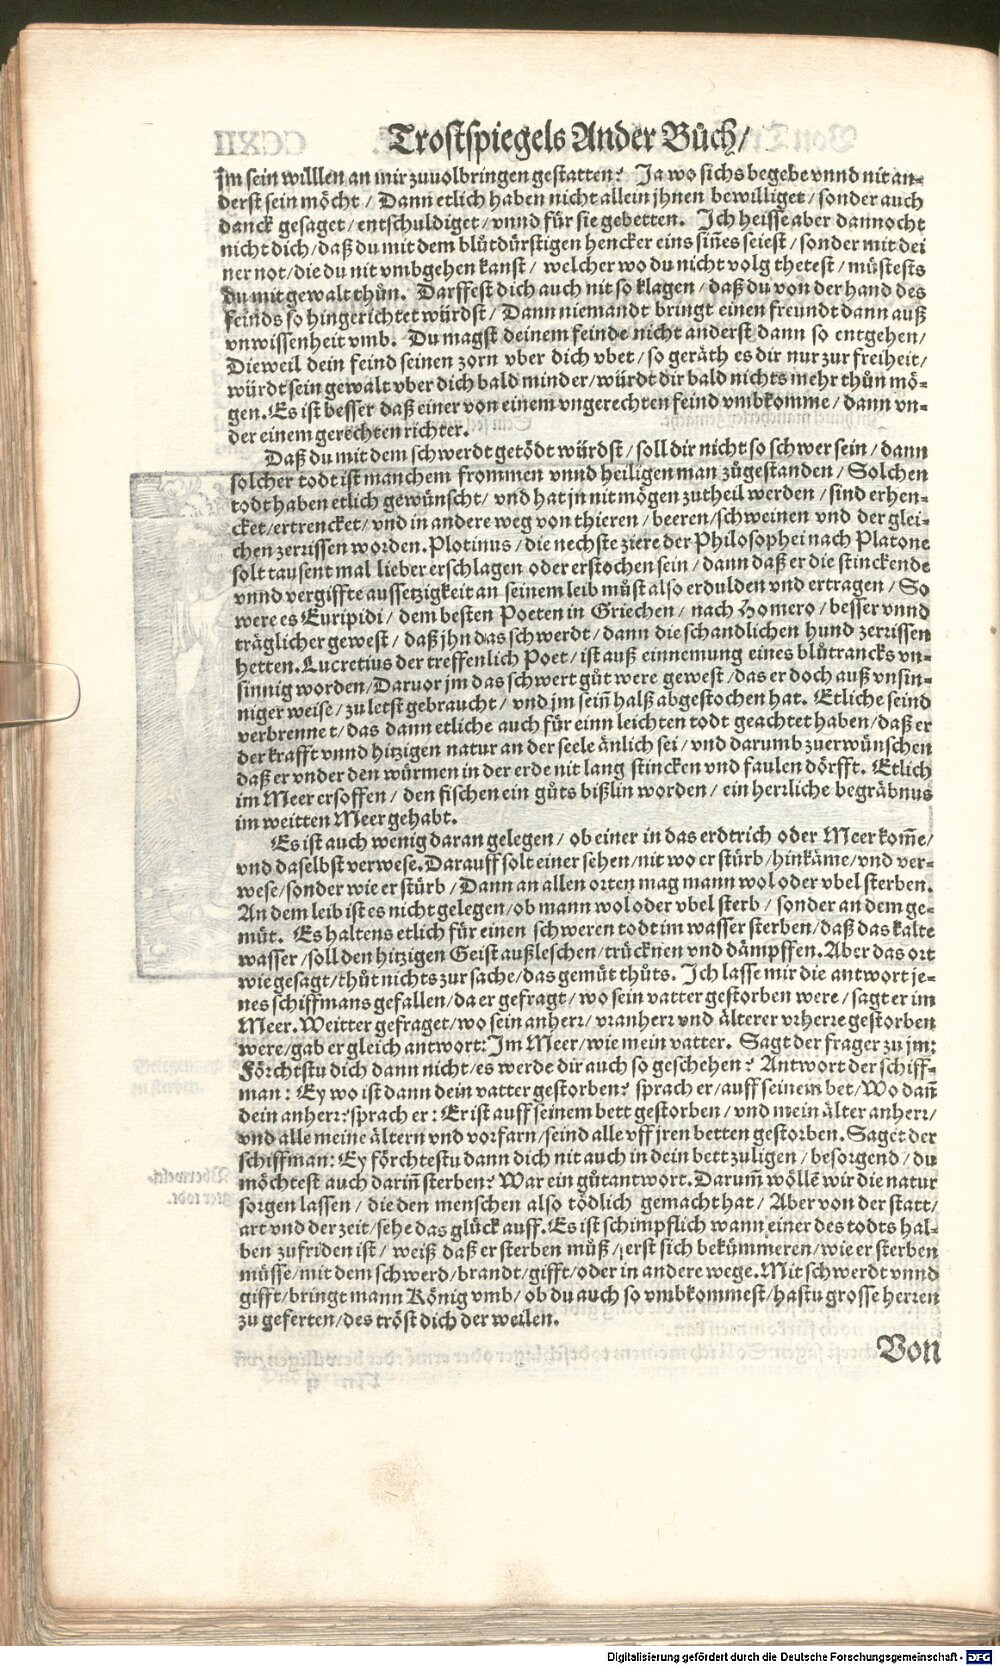 Trostspiegels Ander Bůch/
Im sein willlen an mir zuuolbringen gestatten? Ja wo sichs begebe vnnd nit an-
derst sein möcht / Dann etlich haben nicht allein jhnen bewilliget / sonder auch
danck gesaget / entschuldiget / vnnd für sie gebetten. Ich heisse aber dannocht
nicht dich / daß du mit dem blůtdürstigen hencker eins siñes seiest / sonder mit dei
ner not / die du nit vmbgehen kanst / welcher wo du nicht volg thetest / müstests
du mit gewalt thůn. Darffest dich auch nit so klagen / daß du von der hand des
feinds so hingerichtet würdst / Dann niemandt bringt einen freundt dann auß
vnwissenheit vmb. Du magst deinem feinde nicht anderst dann so entgehen /
Dieweil dein feind seinen zorn vber dich vbet / so geräth es dir nur zur freiheit /
würdt sein gewalt vber dich bald minder / würdt dir bald nichts mehr thůn mö-
gen. Es ist besser daß einer von einem vngerechten feind vmbkomme / dann vn-
der einem gerechten richter.
Daß du mit dem schwerdt getödt würdst / soll dir nicht so schwer sein / dann
solcher todt ist manchem frommen vnnd heiligen man zůgestanden / Solchen
todt haben etlich gewünscht / vnd hat jn nit mögen zutheil werden / sind erhen-
cket / ertrencket / vnd in andere weg von thieren / beeren / schweinen vnd der glei-
chen zerrissen worden. Plotinus / die nechste ziere der Philosophei nach Platone
solt tausent mal lieber erschlagen oder erstochen sein / dann daß er die stinckende
vnnd vergiffte aussetzigkeit an seinem leib můst also erdulden vnd ertragen / So
were es Euripidi / dem besten Poeten in Griechen / nach Homero / besser vnnd
träglicher gewest / daß jhn das schwerdt / dann die schandlichen hund zerrissen
hetten. Lucretius der treffenlich Poet / ist auß einnemung eines blůtrancks vn-
sinnig worden / Daruor jm das schwert gůt were gewest / das er doch auß vnsin-
niger weise / zu letst gebraucht / vnd jm seiñ halß abgestochen hat. Etliche seind
verbrennet / das dann etliche auch für einn leichten todt geachtet haben / daß er
der krafft vnnd hitzigen natur an der seele änlich sei / vnd darumb zuerwünschen
daß er vnder den würmen in der erde nit lang stincken vnd faulen dörfft. Etlich
im Meer ersoffen / den fischen ein gůts bißlin worden / ein herrliche begräbnus
im weitten Meer gehabt.
Es ist auch wenig daran gelegen / ob einer in das erdtrich oder Meer kom̃e /
vnd daselbst verwese. Darauff solt einer sehen / nit wo er stürb / hinkäme / vnd ver-
wese / sonder wie er stürb / Dann an allen orten mag mann wol oder vbel sterben.
An dem leib ist es nicht gelegen / ob mann wol oder vbel sterb / sonder an dem ge-
müt. Es haltens etlich für einen schweren todt im wasser sterben / daß das kalte
wasser / soll den hitzigen Geist außleschen / trücknen vnd dämpffen. Aber das ort
wie gesagt / thůt nichts zur sache / das gemüt thůts. Ich lasse mir die antwort je-
nes schiffmans gefallen / da er gefragt / wo sein vatter gestorben were / sagt er im
Meer. Weitter gefraget / wo sein anherr / vranherr vnd älterer vrherre gestorben
were / gab er gleich antwort: Im Meer / wie mein vatter. Sagt der frager zu jm:
Förchtstu dich dann nicht / es werde dir auch so geschehen? Antwort der schiff-
man: Ey wo ist dann dein vatter gestorben? sprach er / auff seinem bet / Wo dañ
dein anherr? sprach er: Er ist auff seinem bett gestorben / vnd mein älter anherr /
vnd alle meine ältern vnd vorfarn / seind alle vff jren betten gestorben. Saget der
schiffman: Ey förchtestu dann dich nit auch in dein bett zuligen / besorgend / du
möchtest auch dariñ sterben? War ein gůt antwort. Darum̃ wöllẽ wir die natur
sorgen lassen / die den menschen also tödlich gemacht hat / Aber von der statt /
art vnd der zeit / sehe das glück auff. Es ist schimpflich wann einer des todts hal-
ben zufriden ist / weiß daß er sterben můß / jerst sich bekümmeren / wie er sterben
müsse / mit dem schwerd / brandt / gifft / oder in andere wege. Mit schwerdt vnnd
gifft / bringt mann König vmb / ob du auch so vmbkommest / hastu grosse herren
zu geferten / des tröst dich der weilen.
Von
Digitalisierung gefördert durch die Deutsche Forschungsgemeinschaft - DFG